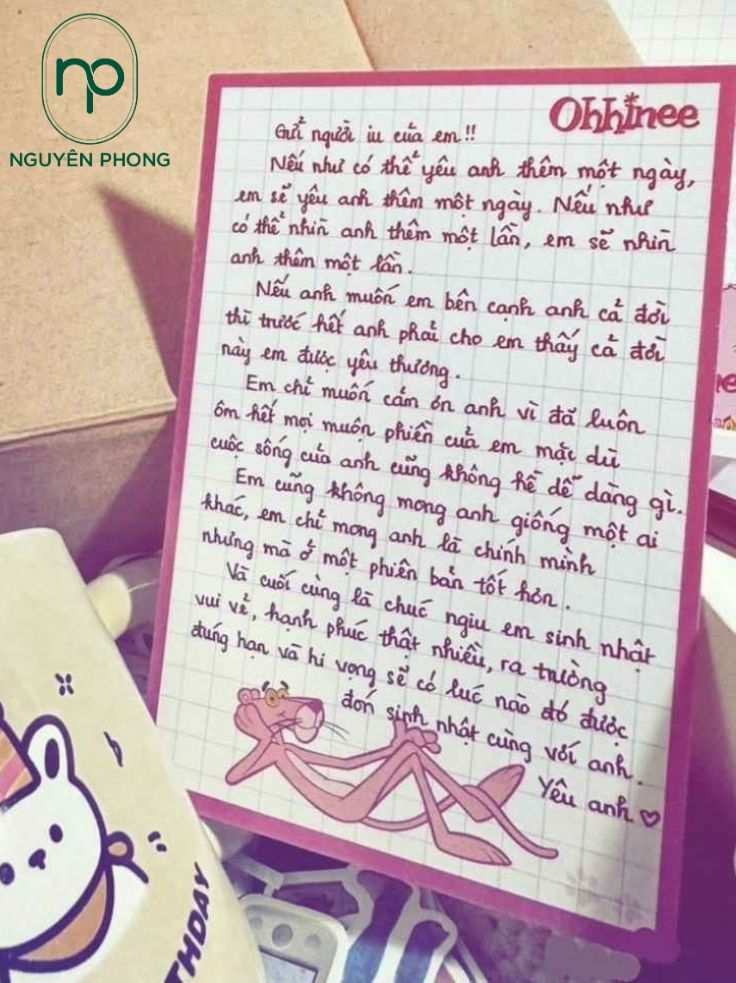 np
NGUYÊN PHONG
Ohhinee
Gửi người iu của em!!
Nếu như có thể yêu anh thêm một ngày,
em sẽ yêu anh thêm một ngày. Nếu như
có thể nhìn anh thêm một lần, em sẽ nhìn
anh thêm một lần.
Nếu anh muốn em bên cạnh anh cả đời
thì trước hết anh phải cho em thấy cả đời
này em được yêu thương.
Em chỉ muốn cảm ơn anh vì đã luôn
ôm hết mọi muộn phiền của em mặc dù
cuộc sống của anh cũng không hề dễ dàng gì.
Em cũng không mong anh giống một ai
khác, em chỉ mong anh là chính mình
nhưng mà ở một phiên bản tốt hơn.
Và cuối cùng là chúc ngiu em sinh nhật
vui vẻ, hạnh phúc thật nhiều, ra trường
đúng hạn và hi vọng sẽ có lúc nào đó được
đón sinh nhật cùng với anh.
Yêu anh ♡
THDAY